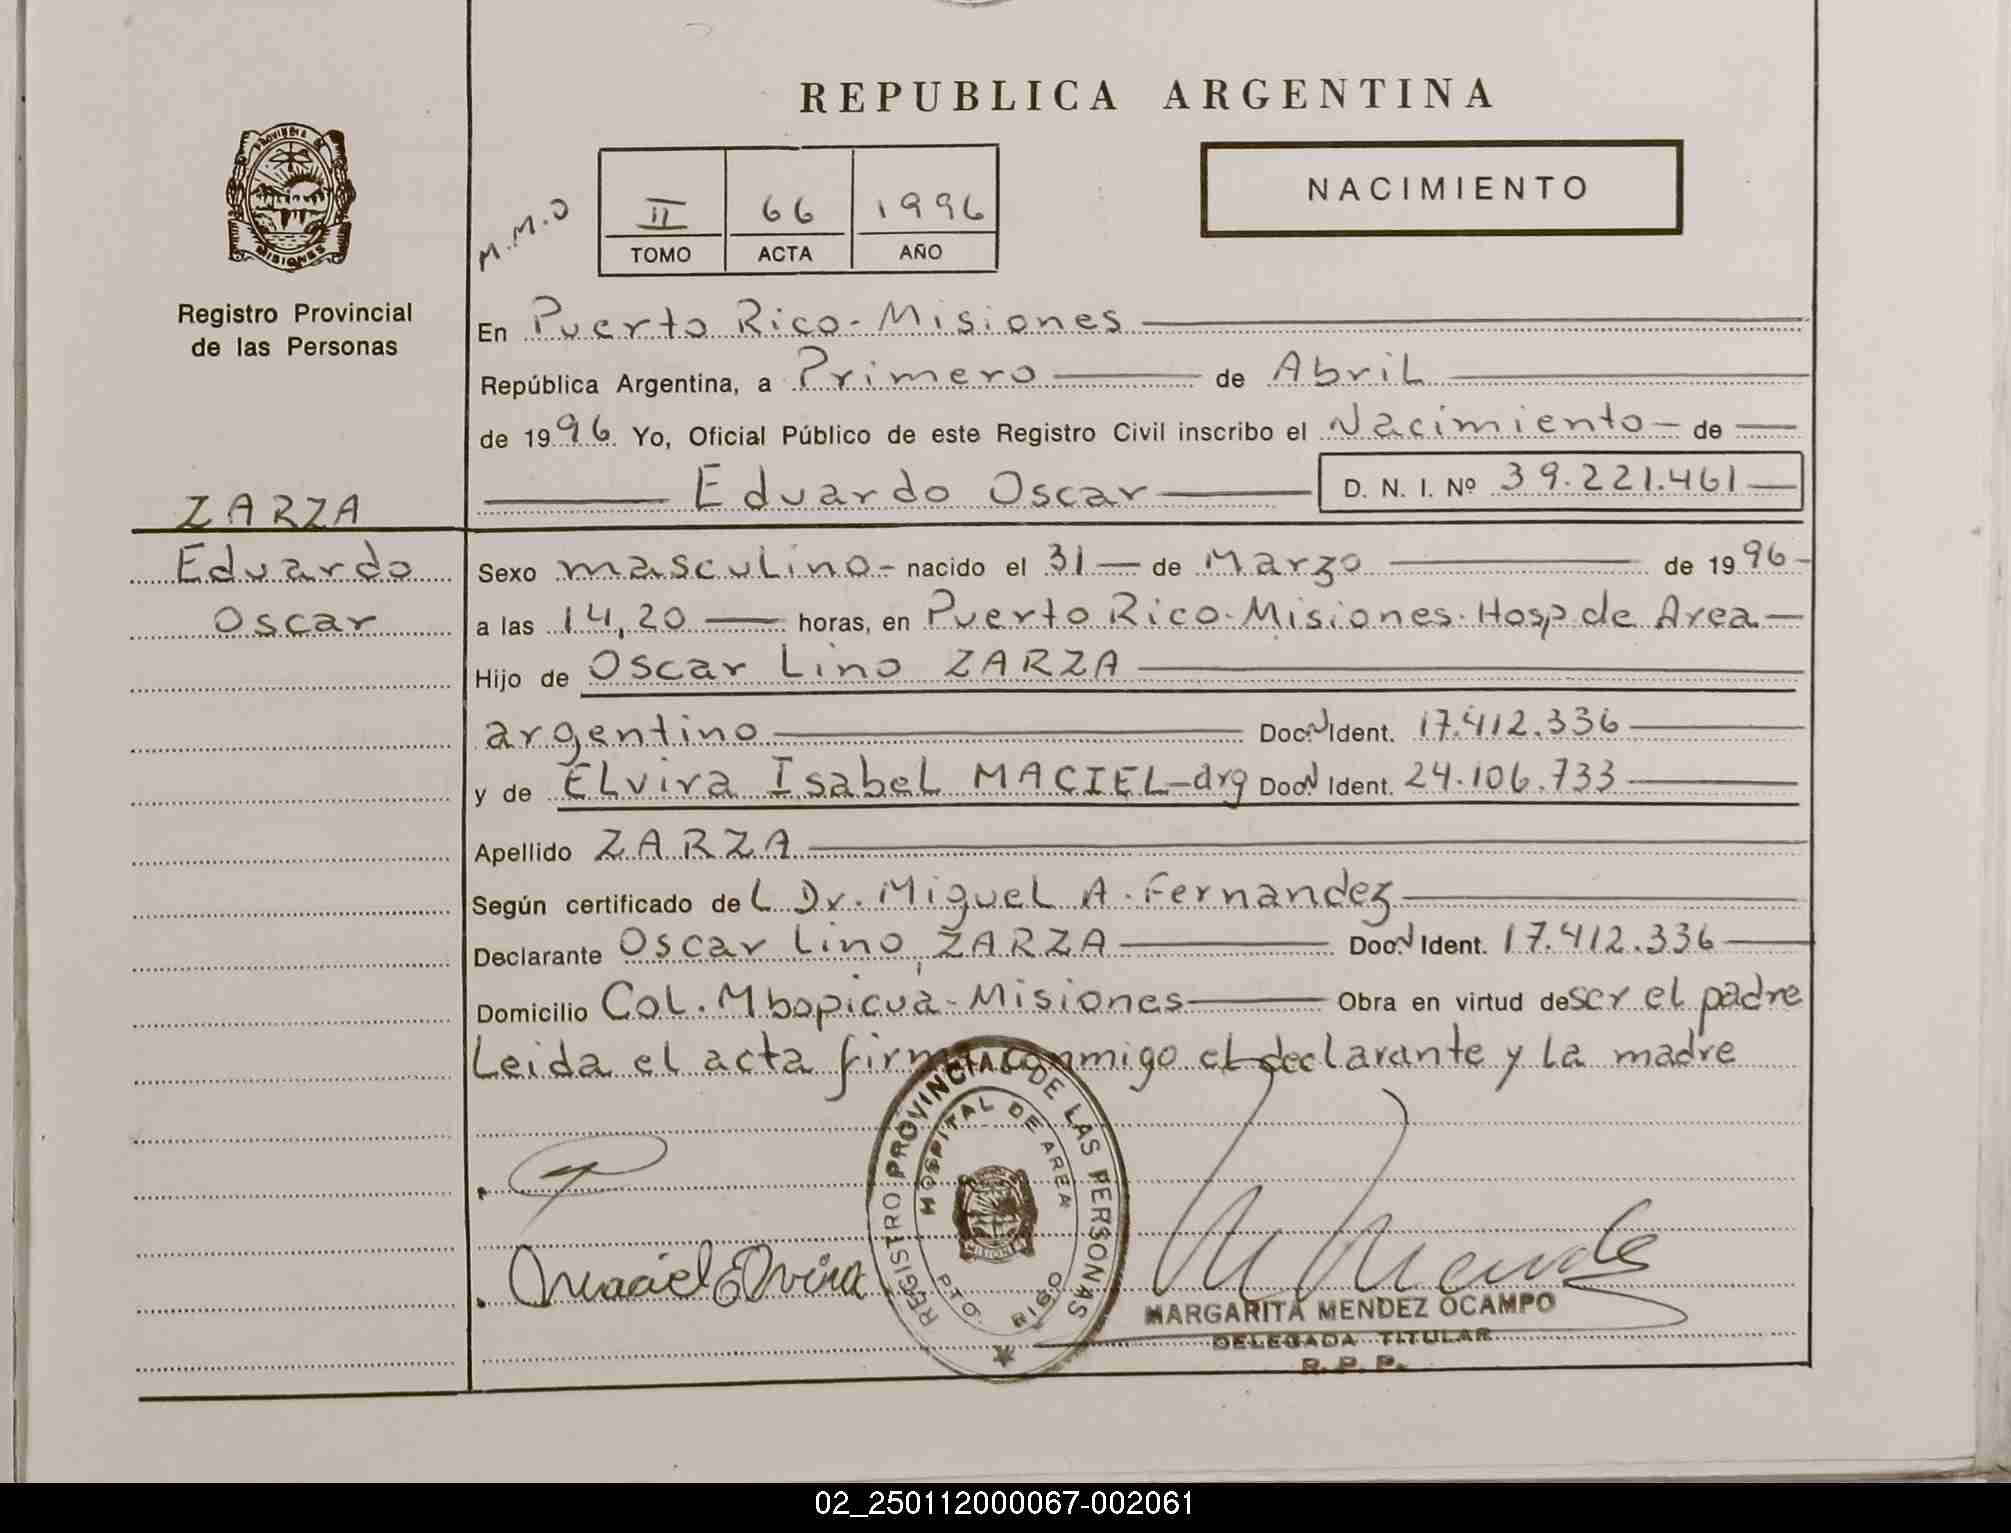 REPUBLICA ARGENTINA
PROVINCIA DE
MISIONES
Registro Provincial
de las Personas
M.M.O
II 66 1996
TOMO ACTA AÑO
NACIMIENTO
En Puerto Rico-Misiones
República Argentina, a Primero de Abril
de 1996 Yo, Oficial Público de este Registro Civil inscribo el Nacimiento de
Eduardo Oscar D. N. I. Nº 39.221.461
ZARZA
Eduardo
Oscar
Sexo masculino - nacido el 31 de Marzo de 1996
a las 14,20 horas, en Puerto Rico-Misiones-Hosp de Area
Hijo de Oscar Lino ZARZA
argentino Doc.N Ident. 17.412.336
y de Elvira Isabel MACIEL-arg Doc.N Ident. 24.106.733
Apellido ZARZA
Según certificado del Dr. Miguel A. Fernandez
Declarante Oscar Lino ZARZA Doc.N Ident. 17.412.336
Domicilio Col. Mbopicuá-Misiones Obra en virtud de ser el padre
Leida el acta firma conmigo el declarante y la madre
REGISTRO PROVINCIAL DE LAS PERSONAS
HOSPITAL DE AREA
PTO. RICO
MISIONES
Maciel Elvira
MARGARITA MENDEZ OCAMPO
DELEGADA TITULAR
R. P. P.
02_250112000067-002061